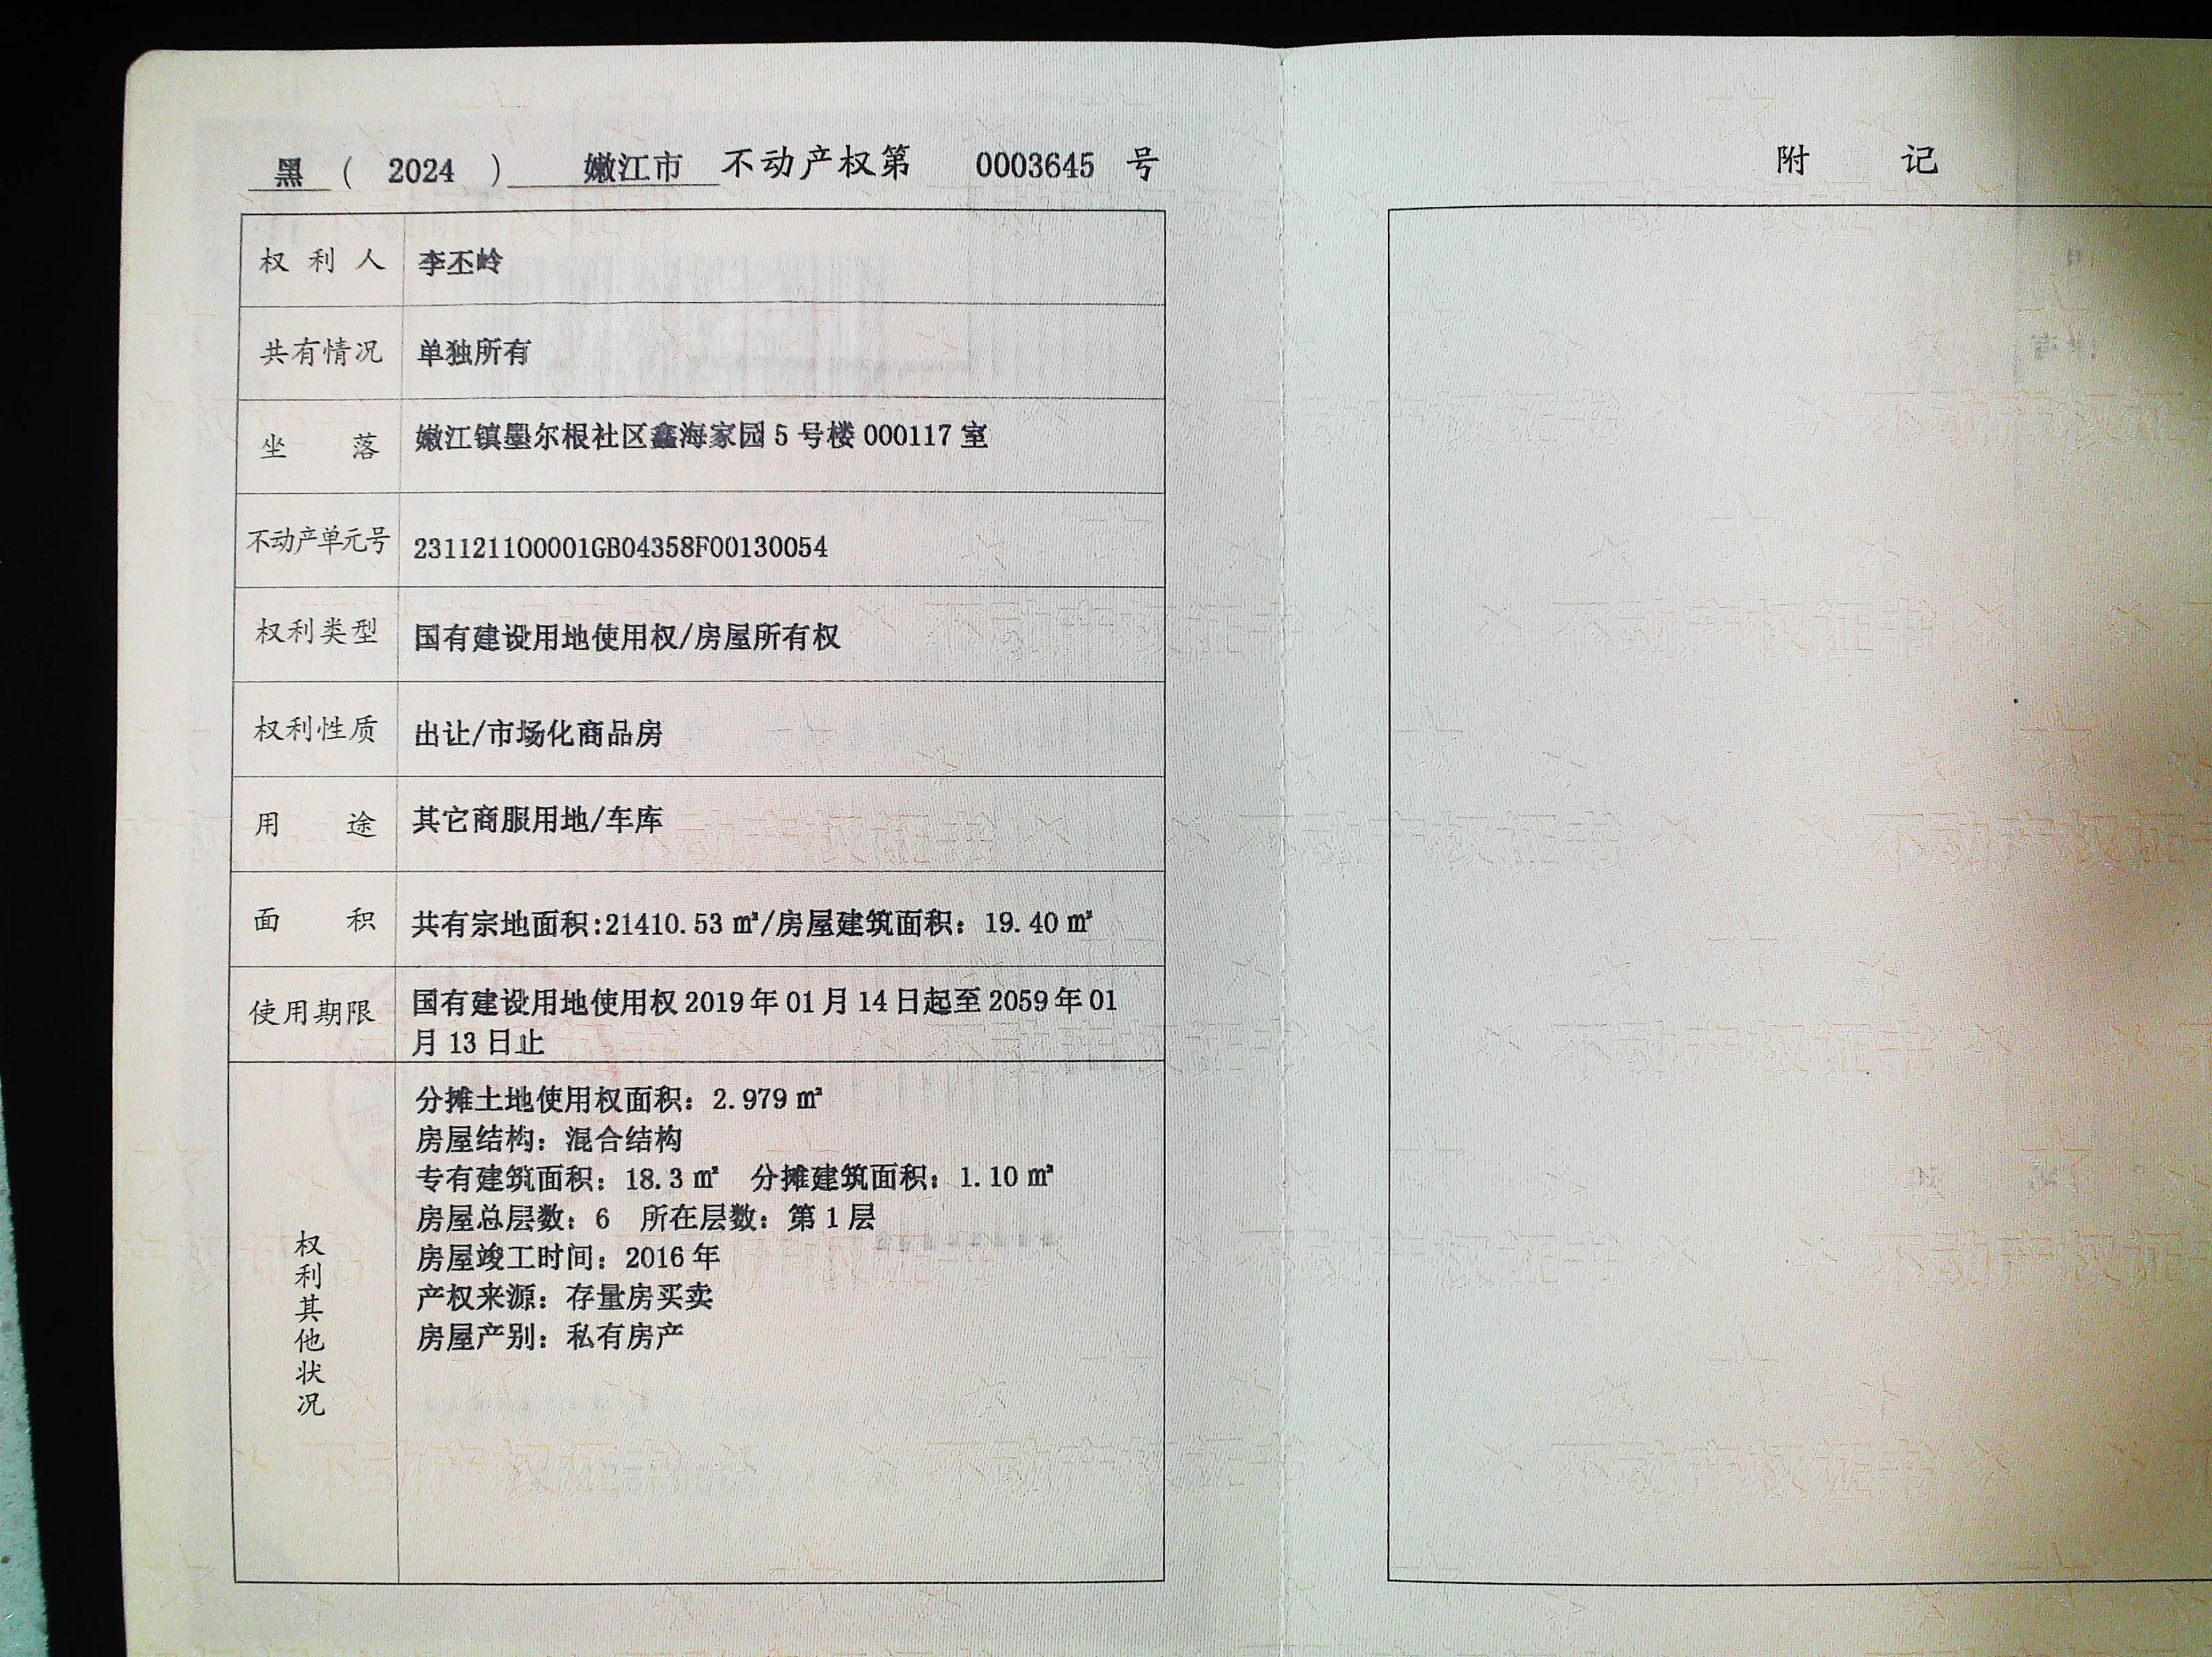 黑 ( 2024 ) 嫩江市 不动产权第 0003645 号
权利人 李丕岭
共有情况 单独所有
坐落 嫩江镇墨尔根社区鑫海家园 5 号楼 000117 室
不动产单元号 231121100001GB04358F00130054
权利类型 国有建设用地使用权/房屋所有权
权利性质 出让/市场化商品房
用途 其它商服用地/车库
面积 共有宗地面积:21410.53 ㎡/房屋建筑面积：19.40 ㎡
使用期限 国有建设用地使用权 2019 年 01 月 14 日起至 2059 年 01
月 13 日止
权利其他状况
分摊土地使用权面积：2.979 ㎡
房屋结构：混合结构
专有建筑面积：18.3 ㎡ 分摊建筑面积：1.10 ㎡
房屋总层数：6 所在层数：第 1 层
房屋竣工时间：2016 年
产权来源：存量房买卖
房屋产别：私有房产
附记